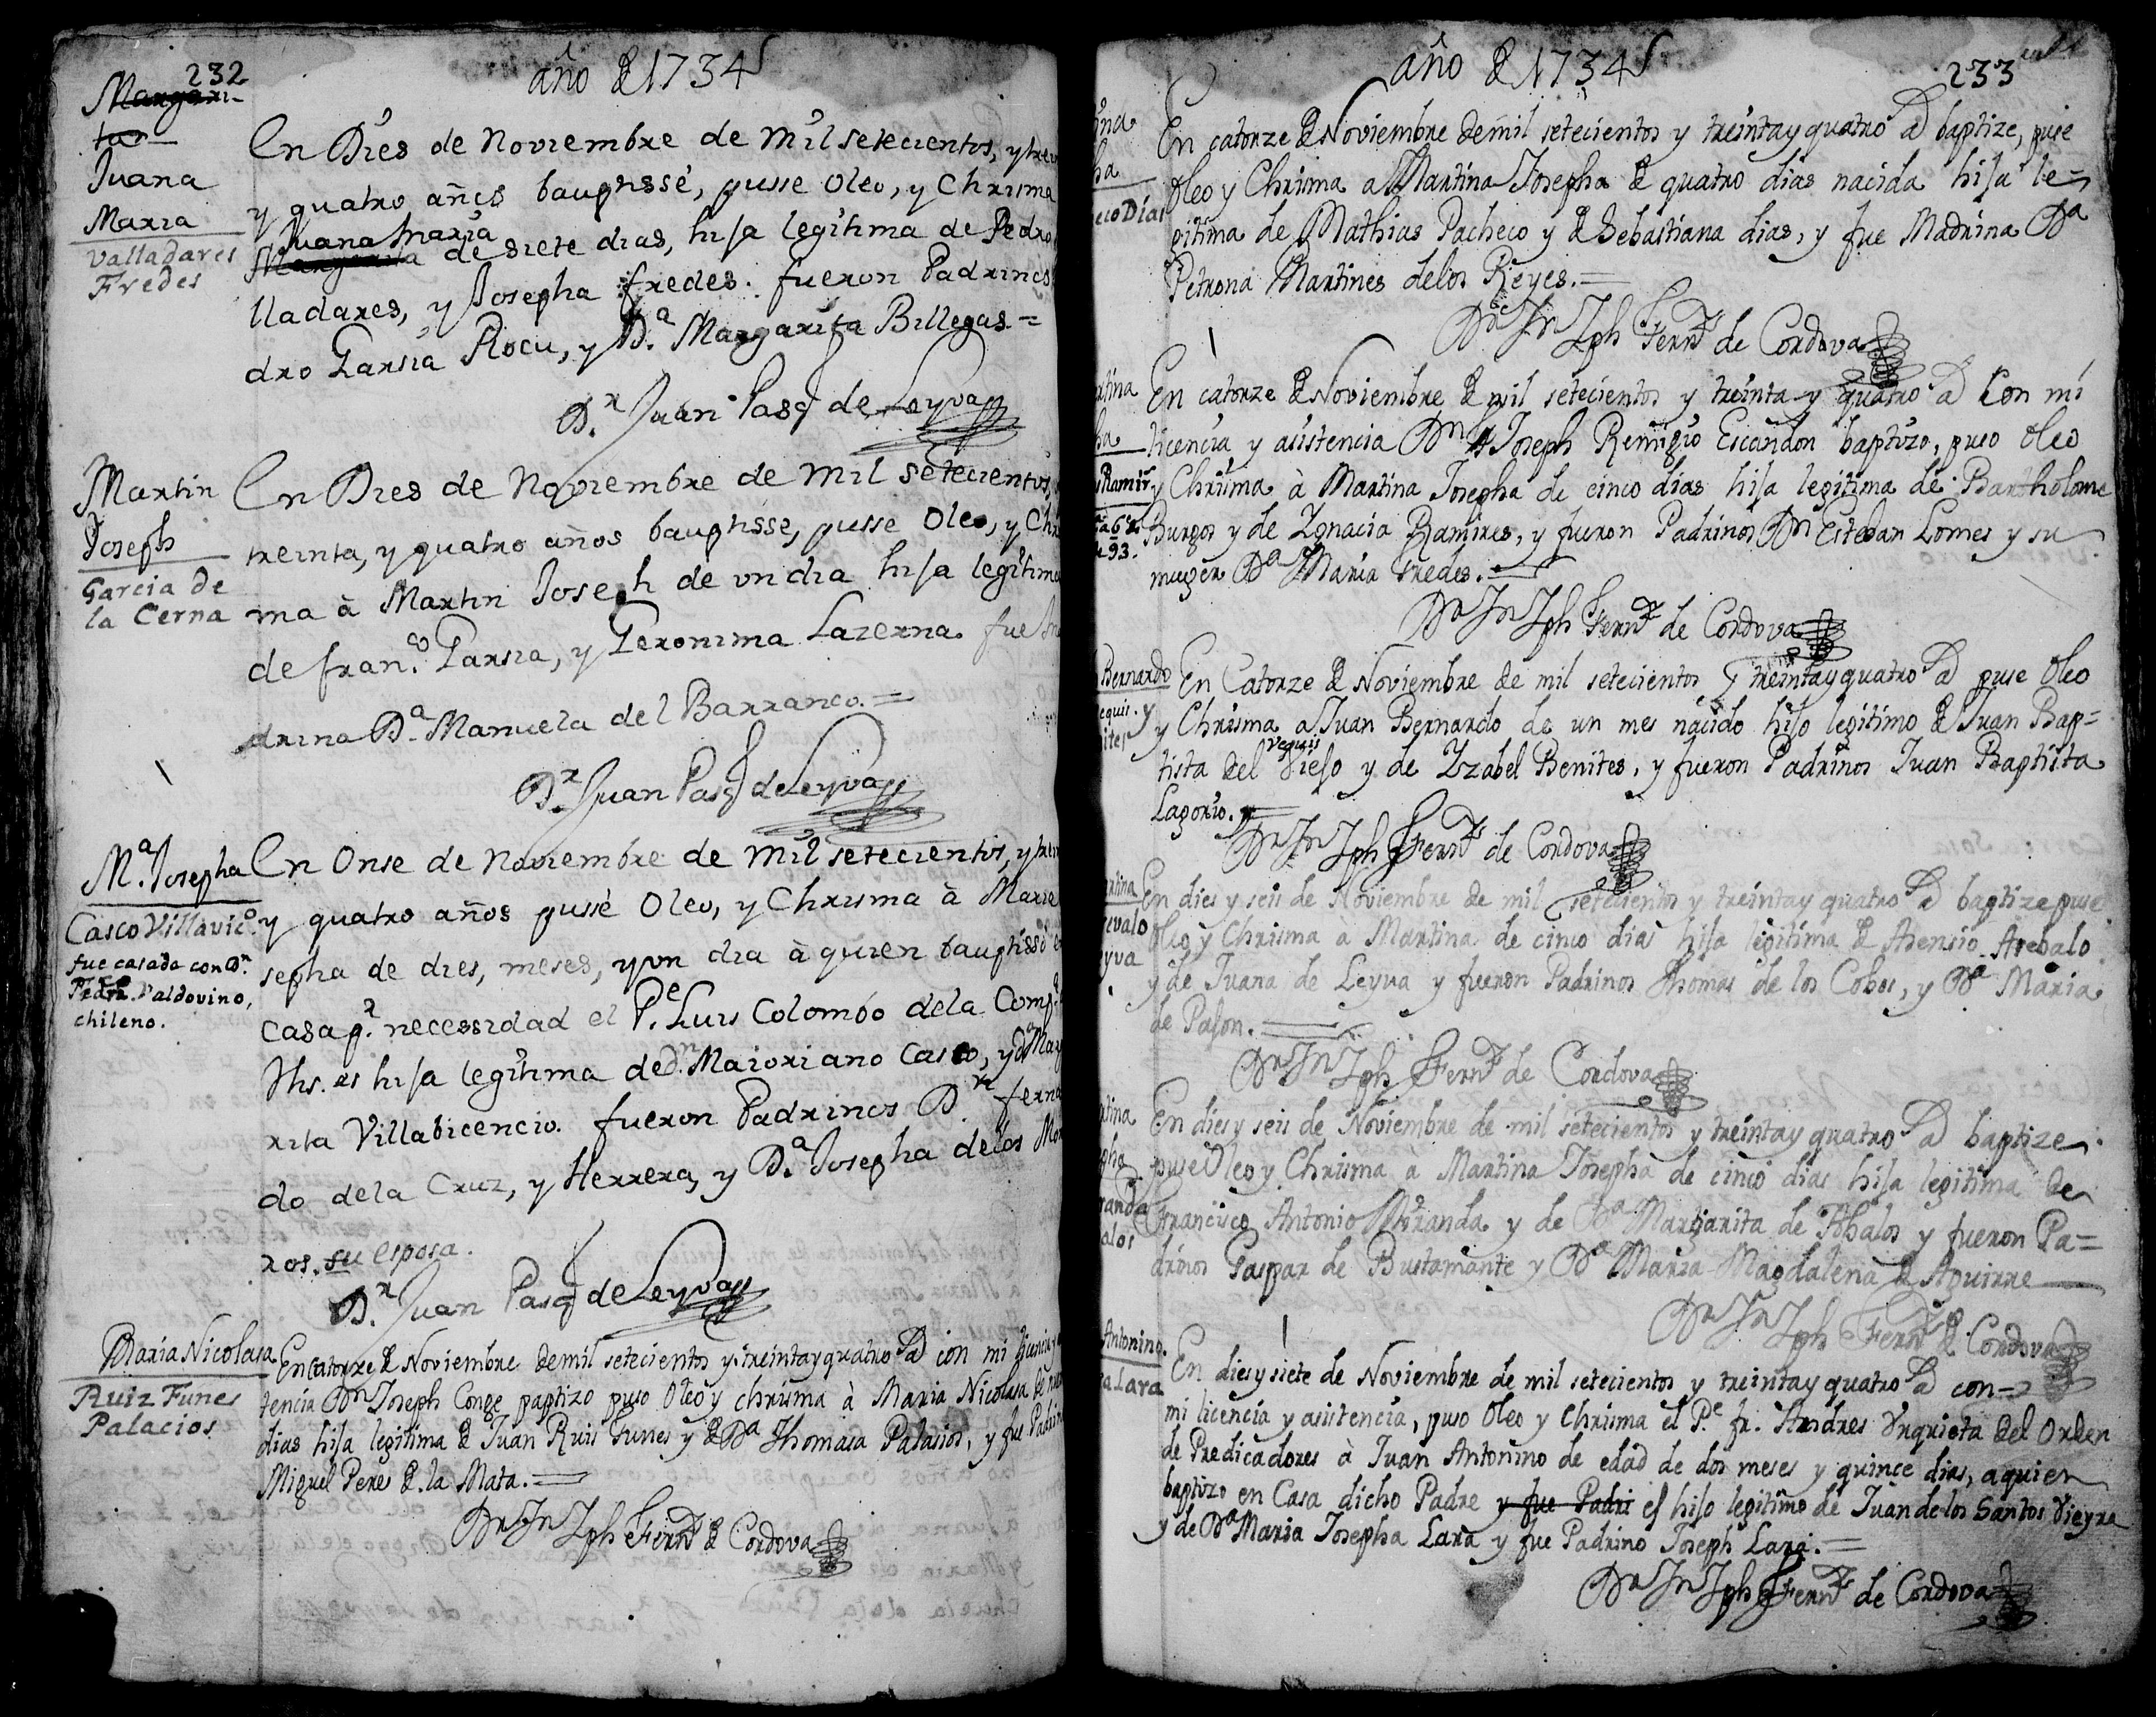 232
año d 1734
Margari-
ta
Juana
Maria
Valladares
Fredes
En Dies de Noviembre de mil setecientos, y trei
y quatro años bauptissé, pusse Oleo, y Chrisma
Juana Maria
Margarita de siete dias, hija legitima de Pedro
lladares, y Josepha fredes. fueron Padrinos
dro Garsia Rocu, y D.ª Margarita Billegas.=
D.r Juan Pasq de Leyva
Martin
Joseph
Garcia de
la Cerna
En Dies de Noviembre de mil setecientos,
treinta, y quatro años bauptisse, pusse Oleo, y Chr
ma à Martin Joseph de vn dia hija legitima
de fran.co Garsia, y Geronima Lazerna. fue
drina D.ª Manuela del Barranco.=
D.r Juan Pasq de Leyva
M.ª Josepha
Casco Villavic.o
fue casada con Dn.
Pedro Valdovino,
chileno.
En Onse de Noviembre de mil setecientos, y trei
y quatro años pussé Oleo, y Chrisma à Maria
sepha de dies, meses, y vn dia à quien bauptissó e
casa p.r necessidad el P.e Luis Colombo de la Comp.ª
Jhs. es hija legitima de d.n Maioriano Casco, y dª Mar
rita Villabicencio. fueron Padrinos D.n ferna
do de la Cruz, y Herrera, y D.ª Josepha de los Mo
ros. su esposa.
D.r Juan Pasq de Leyva
Maria Nicolasa
Ruiz Funes
Palacios
En catorze d Noviembre de mil setecientos y treinta y quatro ad con mi licencia y
tencia Dn Joseph Conge baptizo puso Oleo y chrisma à Maria Nicolasa de
dias hija legitima d Juan Ruis Funes y d Dª Thomasa Palasios, y fue Padrin
Miguel Peres d la Mata.=
Dr Jn Jph Fernz d Cordova
año d 1734
233
ina
ha
eco Días
En catorze d Noviembre de mil setecientos y treinta y quatro ad baptize, puse
Oleo y Chrisma a Martina Josepha d quatro dias nacida hija le=
gitima de Mathias Pacheco y d Sebastiana dias, y fue Madrina Dª
Petrona Martines de los Reyes.=
Dr Jn Jph Fernz de Cordova
rtina
ha
s Ramir
93.
En catorze d Noviembre d mil setecientos y treinta y quatro ad Con mi
licencia y asistencia Dn Joseph Remigio Escandon baptizo, puso Oleo
y Chrisma à Martina Josepha de cinco dias hija legitima de Bartholome
Burgos y de Ignacia Ramires, y fueron Padrinos Dn Esteban Gomes y su
muger Dª Maria Fredes.=
Dr Jn Jph Fernz de Cordova
Bernardo
equis. y
ites
En Catorze d Noviembre de mil setecientos y treinta y quatro ad puse Oleo
y Chrisma a Juan Bernardo de un mes nacido hijo legitimo d Juan Bap=
veguis
tista del Viejo y de Izabel Benites, y fueron Padrinos Juan Baptista
Lagorio.=
Dr Jn Jph Fernz de Cordova
rtina
revalo
yva
En dies y seis de Noviembre de mil setecientos y treinta y quatro ad baptize puse
Oleo y Chrisma a Martina de cinco dias hija legitima d Asensio Arebalo
y de Juana de Leyva y fueron Padrinos Thomas de los Cobos, y Dª Maria
de Pason.=
Dr Jn Jph Fernz de Cordova
rtina
pha
randa
alos
En dies y seis de Noviembre de mil setecientos y treinta y quatro ad baptize
puse Oleo y Chrisma à Martina Josepha de cinco dias hija legitima de
Francisco Antonio Miranda y de Dª Margarita de Abalos y fueron Pa=
drinos Gaspar de Bustamante y Dª Maria Magdalena d Aguirre
Dr Jn Jph Fernz d Cordova
Antonino.
a Lara
En dies y siete de Noviembre de mil setecientos y treinta y quatro ad con
mi licencia y asistencia, puso Oleo y Chrisma el P.e fr. Andres Urquieta del Orden
de Predicadores à Juan Antonino de edad de dos meses y quince dias, a quien
baptizo en Casa dicho Padre y fue Padri es hijo legitimo de Juan de los Santos Vieyra
y de Dª Maria Josepha Lara y fue Padrino Joseph Lara.=
Dr Jn Jph Fernz de Cordova